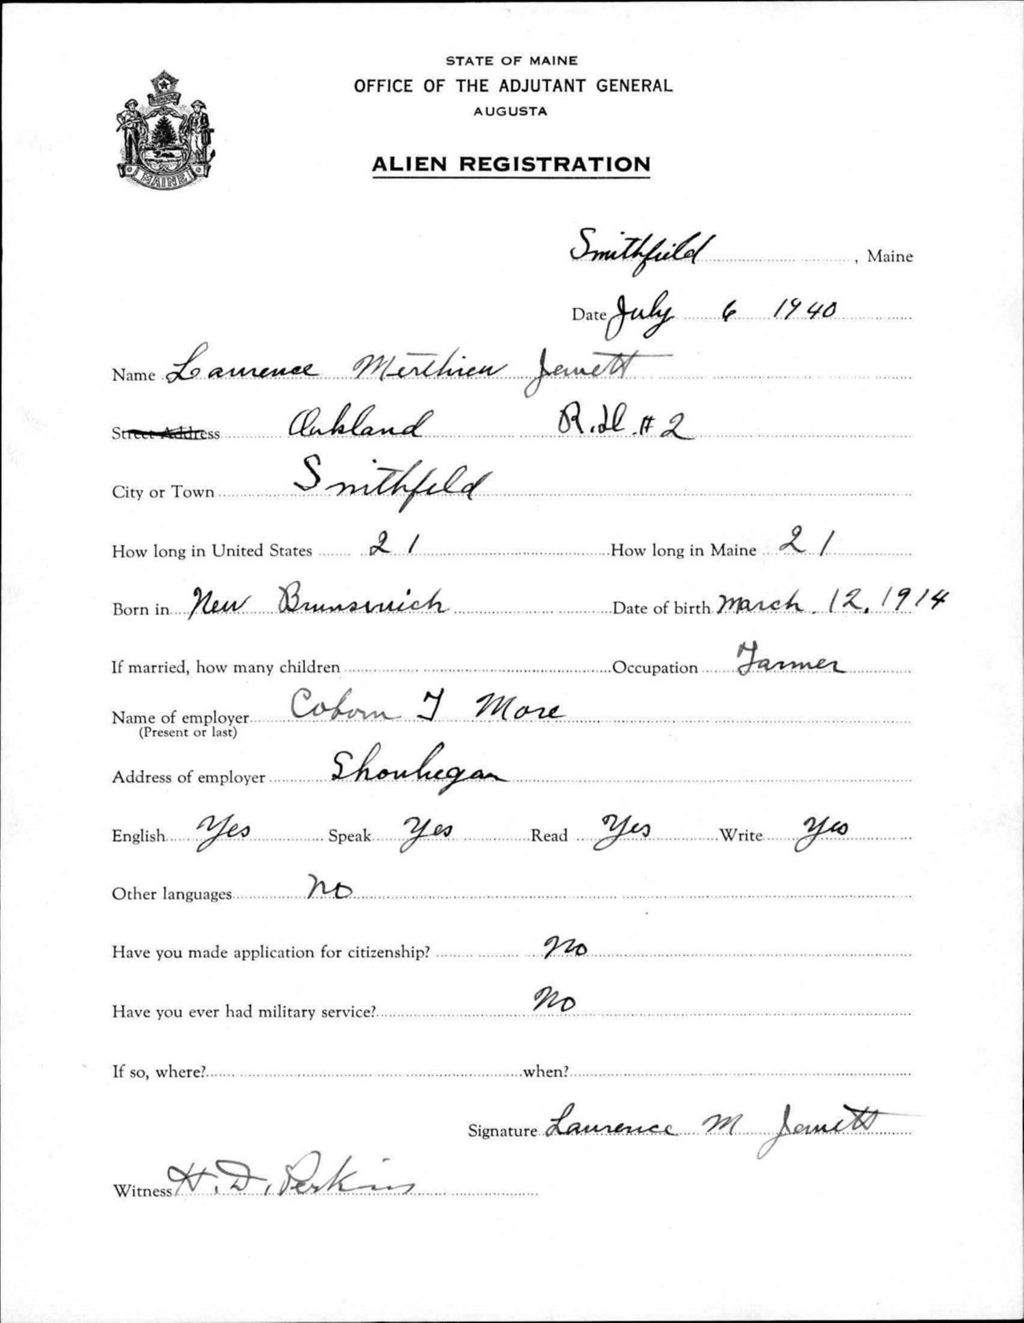 STATE OF MAINE
OFFICE OF THE ADJUTANT GENERAL
AUGUSTA
MAINE
ALIEN REGISTRATION
Smithfield, Maine
Date July 6 1940
Name Lawrence Jewett
Street Address Oakland R.D. # 2
City or Town Smithfield
How long in United States 21 How long in Maine 21
Born in New Brunswich Date of birth March. 12, 1914
If married, how many children Occupation Farmer
Name of employer Coborn F More
(Present or last)
Address of employer
English Yes Speak Yes Read Yes Write Yes
Other languages No
Have you made application for citizenship? No
Have you ever had military service? No
If so, where? when?
Signature Lawrence M Jewett
Witness H. D. Perkins